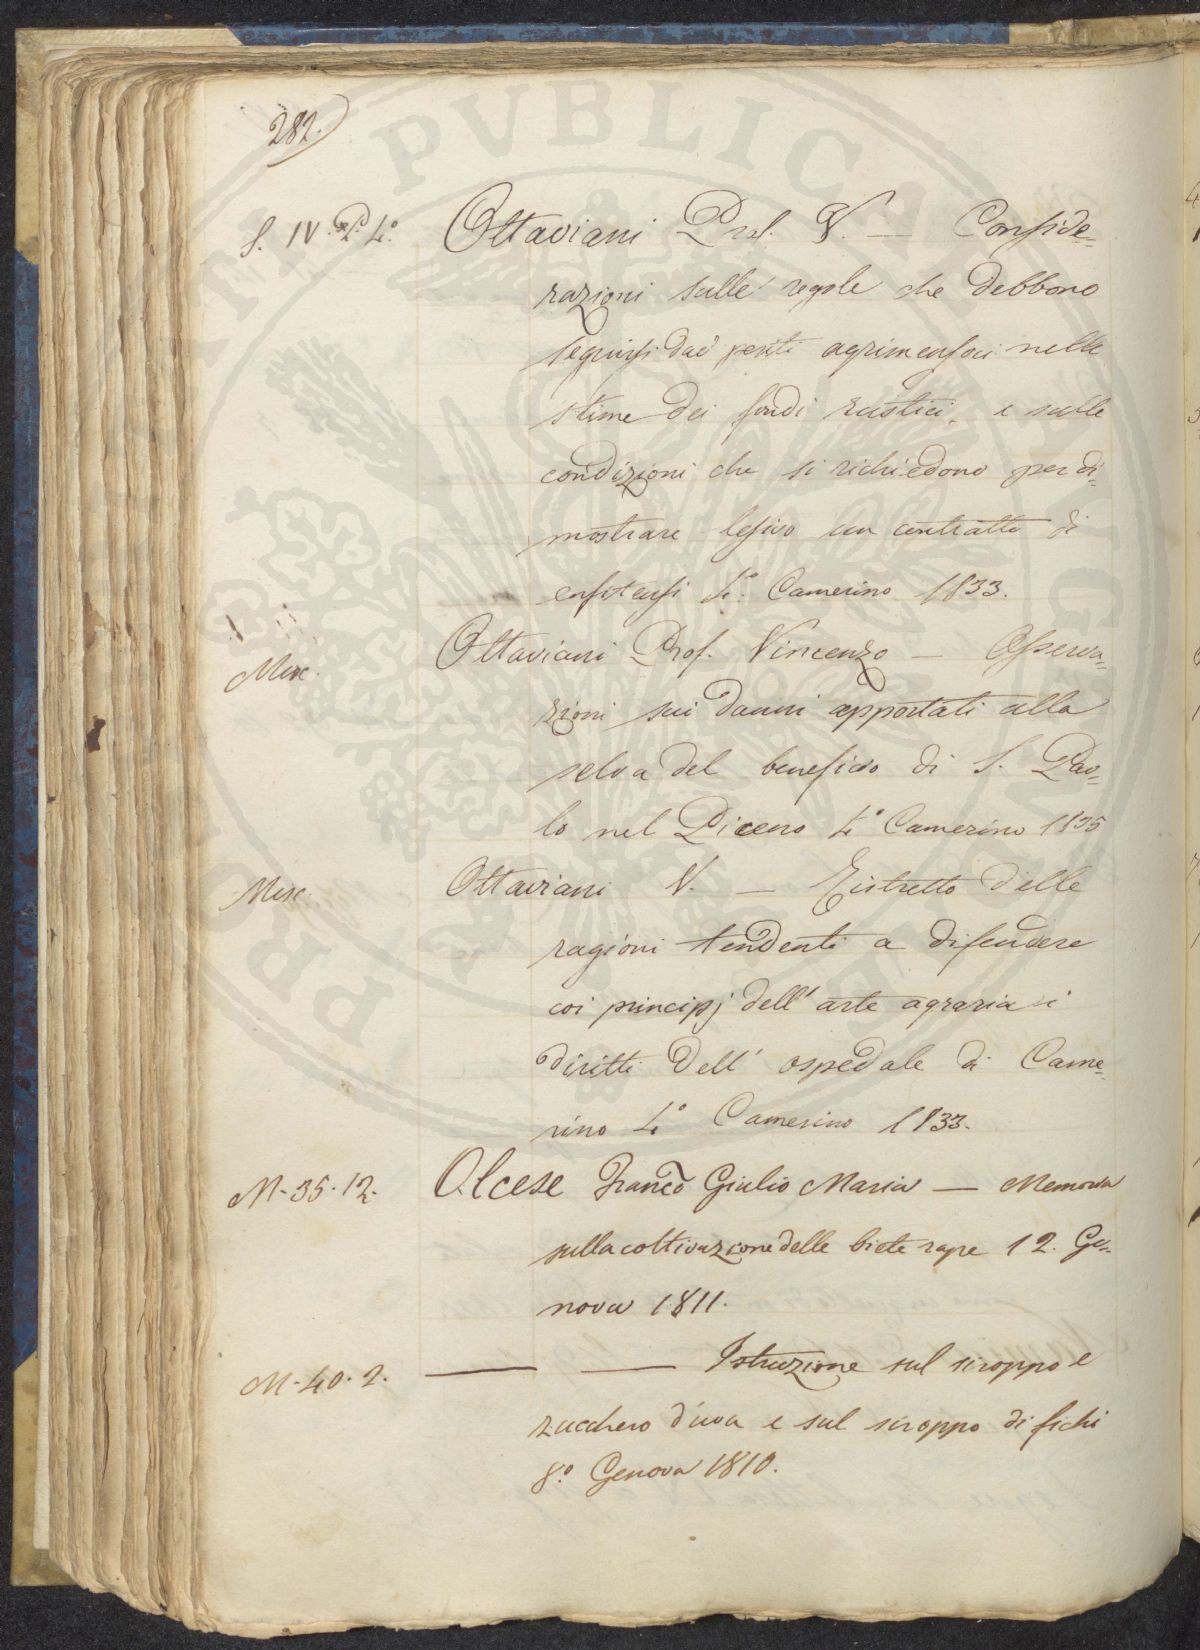 282.
S. IV. P. 4.° Ottaviani Prof. V. — Conside=
razioni sulle regole che debbono
seguirsi dai periti agrimensori nelle
stime dei fondi rustici, e sulle
condizioni che si richiedono per di=
mostrare lesivo un contratto di
enfiteusi 4.° Camerino 1833.
Misc. Ottaviani Prof. Vincenzo — Osserva=
zioni sui danni apportati alla
selva del beneficio di S. Pao=
lo nel Piceno 4.° Camerino 1835
Misc. Ottaviani V. — Ristretto delle
ragioni tendenti a difendere
coi principj dell' arte agraria i
diritti dell' ospedale di Came=
rino 4.° Camerino 1833.
M-35.12. Olcese Franc̃o Giulio Maria — Memoria
sulla coltivazione delle biete rape 12. Ge=
nova 1811.
M-40.2. — — Istruzione sul siroppo e
zucchero d'uva e sul siroppo di fichi
8.° Genova 1810.
PVBLIC